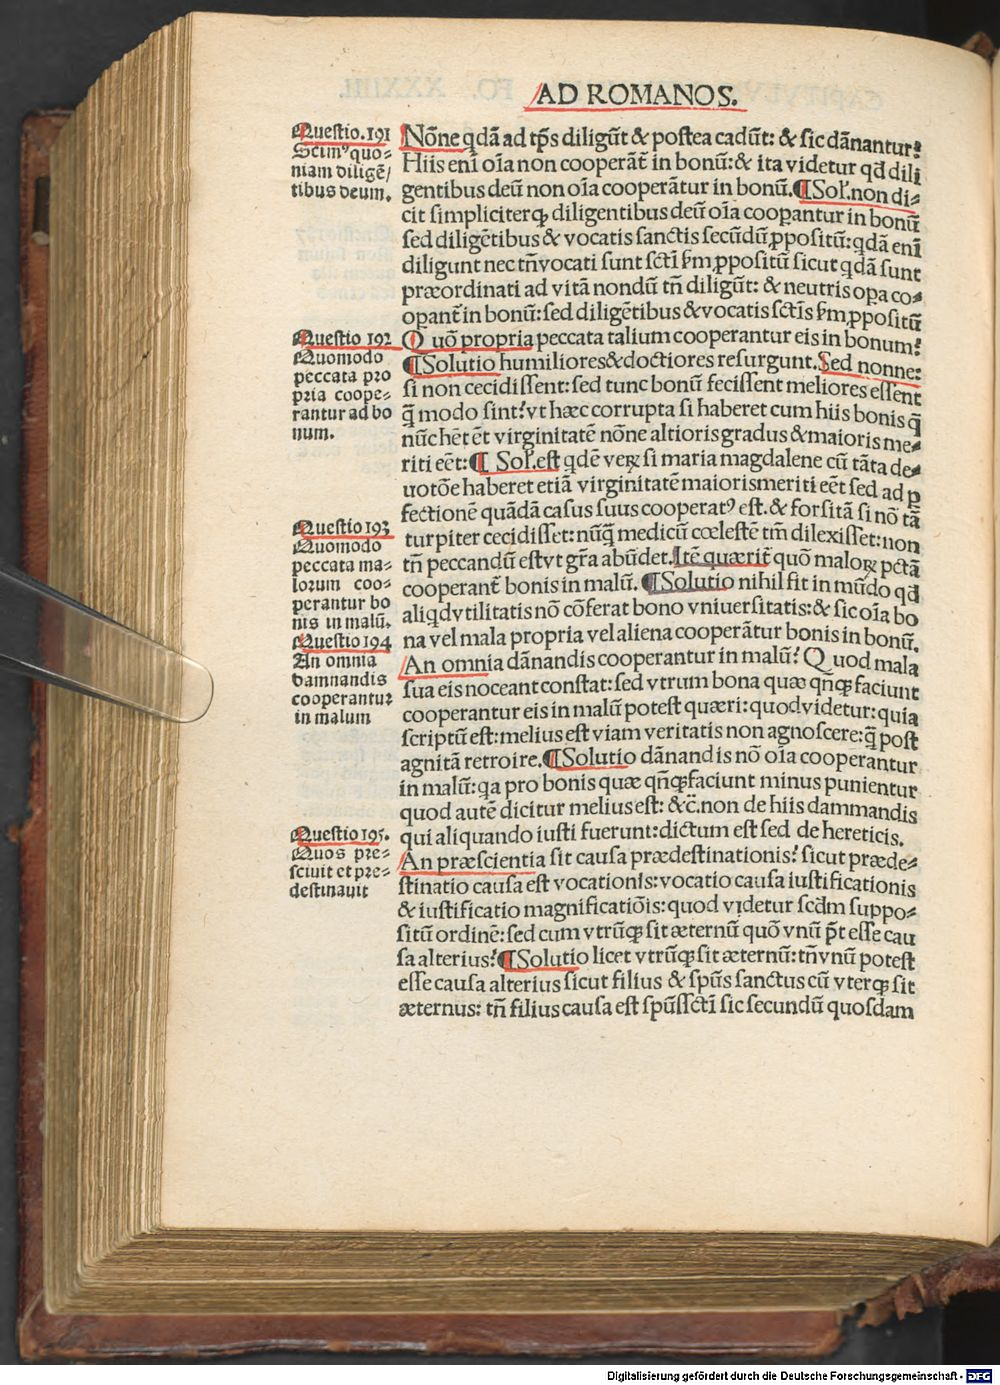 AD ROMANOS.
Questio.191
Scimꝰ quo-
niam diligē/
tibus deum.
Nōne qdā ad tp̄s diligūt & postea cadūt: & sic dānantur?
Hiis enī oīa non cooperāt̄ in bonū: & ita videtur qd̄ dili
gentibus deū non oīa cooperātur in bonū. ¶ Sol'. non di-
cit simpliciter qꝫ diligentibus deū oīa coopantur in bonū
sed diligētibus & vocatis sanctis secūdū ꝓpositū: qdā enī
diligunt nec tn̄ vocati sunt sc̄ti ẜm ꝓpositū sicut qdā sunt
præordinati ad vitā nondū tn̄ diligūt: & neutris oꝑa co-
oꝑant̄ in bonū: sed diligētibus & vocatis sc̄tis ẜm ꝓpositū
Questio 192
Quomodo
peccata pro
pria coope-
rantur ad bo
num.
Quō propria peccata talium cooperantur eis in bonum?
¶ Solutio humiliores & doctiores resurgunt. Sed nonne:
si non cecidissent: sed tunc bonū fecissent meliores essent
q̄ modo sint? vt hæc corrupta si haberet cum hiis bonis q̄
nūc hēt ēt virginitatē nōne altioris gradus & maioris me-
riti eēt: ¶ Sol'. est qdē veꝝ si maria magdalene cū tāta de-
uotōe haberet etiā virginitatē maioris meriti eēt sed ad ꝑ
fectionē quādā casus suus cooperatꝰ est. & forsitā si nō tā
turpiter cecidisset: nūq̄ medicū cœlestē tm̄ dilexisset: non
tn̄ peccandū est vt gr̄a abūdet. Itē quærit̄ quō maloꝝ pctā
cooperant̄ bonis in malū. ¶ Solutio nihil fit in mūdo qd̄
aliqd vtilitatis nō cōferat bono vniuersitatis: & sic oīa bo
na vel mala propria vel aliena cooperātur bonis in bonū.
Questio 193
Quomodo
peccata ma-
lorum coo-
perantur bo
nis in malū.
Questio 194
An omnia
damnandis
cooperantur
in malum
An omnia dānandis cooperantur in malū? Quod mala
sua eis noceant constat: sed vtrum bona quæ qn̄qꝫ faciunt
cooperantur eis in malū potest quæri: quod videtur: quia
scriptū est: melius est viam veritatis non agnoscere: q̄ post
agnitā retroire. ¶ Solutio dānandis nō oīa cooperantur
in malū: qa pro bonis quæ qn̄qꝫ faciunt minus punientur
quod autē dicitur melius est: &c̄. non de hiis dammandis
qui aliquando iusti fuerunt: dictum est sed de hereticis.
Questio 195.
Quos pre-
sciuit et pre-
destinauit
An præscientia sit causa prædestinationis? sicut præde-
stinatio causa est vocationis: vocatio causa iustificationis
& iustificatio magnificatiōis: quod videtur scd̄m suppo-
situ̅ ordinē: sed cum vtrūqꝫ sit æternū quō vnū p̄t esse cau
sa alterius? ¶ Solutio licet vtrūqꝫ sit æternū: tn̄ vnū potest
esse causa alterius sicut filius & spūs sanctus cū vterqꝫ sit
æternus: tn̄ filius causa est spūssctī sic secundū quosdam
Digitalisierung gefördert durch die Deutsche Forschungsgemeinschaft - DFG